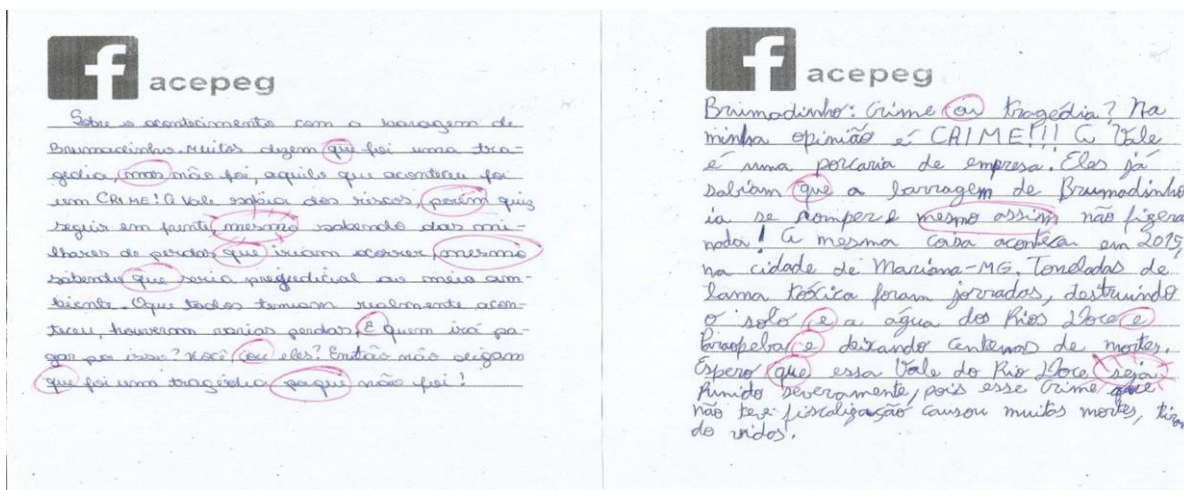 f acepeg
Sobre o acontecimento com a baragem de
Brumadinho. Muitos dizem que foi uma tra-
gédia, mas não foi, aquilo que aconteceu foi
um CRIME! A Vale sabia dos riscos, porém quiz
seguir em frente, mesmo sabendo das mi-
lhares de perdas que iriam ocorrer, mesmo
sabendo que seria prejudicial ao meio am-
biente. Oque todos temiam realmente acon-
teceu, houveram varias perdas, E quem irá pa-
gar por isso? Você ou eles? Então não digam
que foi um tragédia não foi!
f acepeg
Brumadinho: Crime ou tragédia? Na
minha opinião é CRIME!!! A Vale
é uma porcaria de empresa. Eles já
sabiam que a barragem de Brumadinho
ia se romper e mesmo assim não fizera
nada! A mesma coisa aconteceu em 2015,
na cidade de Mariana-MG. Toneladas de
lama tóxica foram jorrados, destruindo
o solo e a água dos Rios Doce e
Paraopeba e deixando centenas de mortes.
Espero que essa Vale do Rio Doce seja
Punido severamente, pois esse Crime que
não teve fiscalização causou muitas mortes, tiran
do vidas.